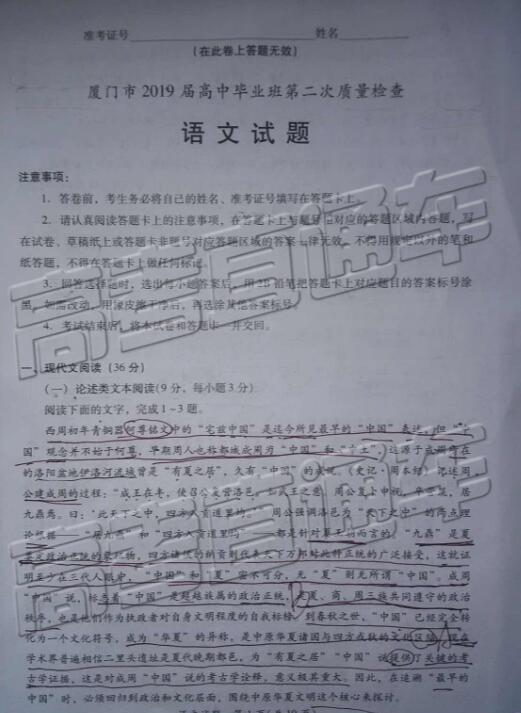 准考证号 姓名
(在此卷上答题无效)
厦门市 2019 届高中毕业班第二次质量检查
语文试题
注意事项：
1. 答卷前，考生务必将自己的姓名、准考证号填写在答题卡上。
2. 请认真阅读答题卡上的注意事项，在答题卡上与题号相对应的答题区域内答题，写
在试卷、草稿纸上或答题卡非题号对应答题区域的答案一律无效。不得用规定以外的笔和
纸答题，不得在答题卡上做任何标记。
3. 回答选择题时，选出每小题答案后，用2B铅笔把答题卡上对应题目的答案标号涂
黑。如需改动，用橡皮擦干净后，再选涂其他答案标号。
4. 考试结束后，将本试卷和答题卡一并交回。
一、现代文阅读(36分)
(一)论述类文本阅读(9分，每小题3分)
阅读下面的文字，完成1－3题。
西周初年青铜器何尊铭文中的“宅兹中国”是迄今所见最早的“中国”表达，但“中
国”观念并不始于何尊，早期周人也称都城成周为“中国”和“中土”，这源于成周所在
的洛阳盆地伊洛河流域曾是“有夏之居”，久有“中国”的成说。《史记·周本纪》记述周
公建成周的过程：“成王在丰，使召公复营洛邑，如武王之意。周公复卜申视，卒营筑，居
九鼎焉。曰：‘此天下之中，四方入贡道里均。’”周公强调洛邑为“天下之中”的两点理
论根据——“居九鼎”和“四方入贡道里均”——都是针对夏王朝而言的。“九鼎”是夏
王朝政治正统的象征物，四方诸侯的纳贡则代表天下万邦对此种正统的广泛接受，这就证
明至少在三代人眼中，“中国”和“夏”密不可分，无“夏”则无所谓“中国”。成周
“中国”说，标志着“中国”是超越族属的政治正统，是夏、商、周三族共同遵守的政治
秩序，也是他们作为执政者对自身文明程度的自我标榜。到春秋之世，“中国”已经完全转
化为一个文化符号，成为“华夏”的异称，是中原华夏诸国与四方戎狄的文化区隔。现在
学术界普遍相信二里头遗址是夏代晚期都邑，为“有夏之居”“中国”说提供了关键的考
古学证据，这是对成周“中国”说的考古学诠释，意义极其重大。因此，在追溯“最早的
中国”时，必须回归到政治和文化层面，围绕中原华夏文明这个核心来探讨。
高考直通车
高考直通车